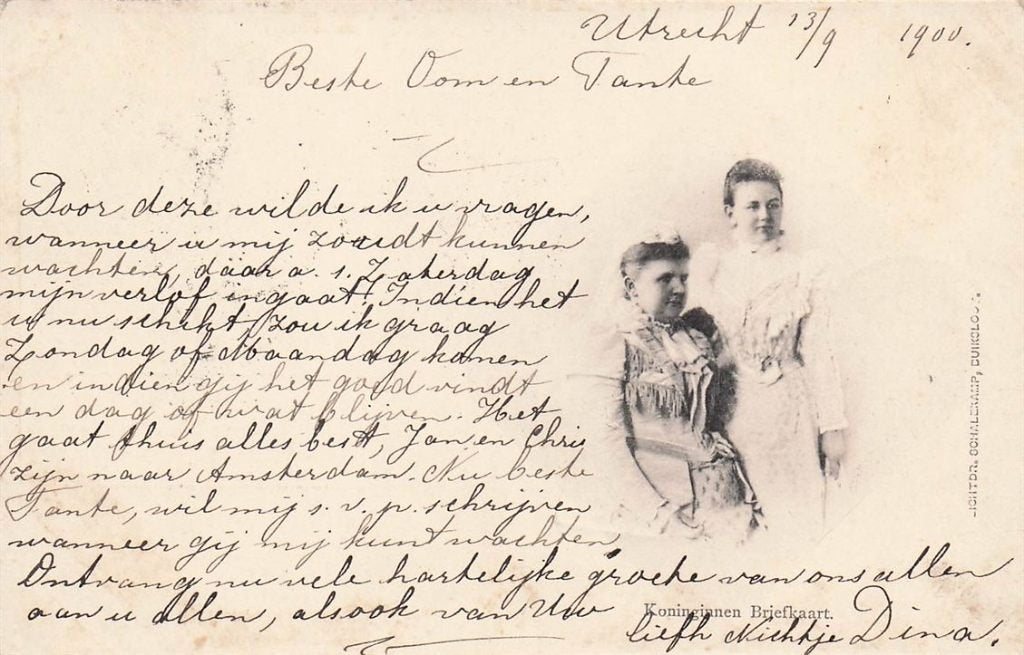 Utrecht 13/9 1900.
Beste Oom en Tante
Door deze wilde ik u vragen,
wanneer u mij zoudt kunnen
wachten, daar a. s. Zaterdag
mijn verlof ingaat. Indien het
u nu schikt, zou ik graag
Zondag of Maandag komen
en indien gij het goed vindt
een dag of wat blijven. Het
gaat thuis alles best, Jan en Chris
zijn naar Amsterdam. Nu beste
Tante, wil mij s. v. p. schrijven
wanneer gij mij kunt wachten
Ontvang nu vele hartelijke groete van ons allen
aan u allen, alsook van Uw
Koninginnen Briefkaart.
liefh Nichtje Dina.
LICHTDR. SCHALEKAMP, BUIKSLOOT.